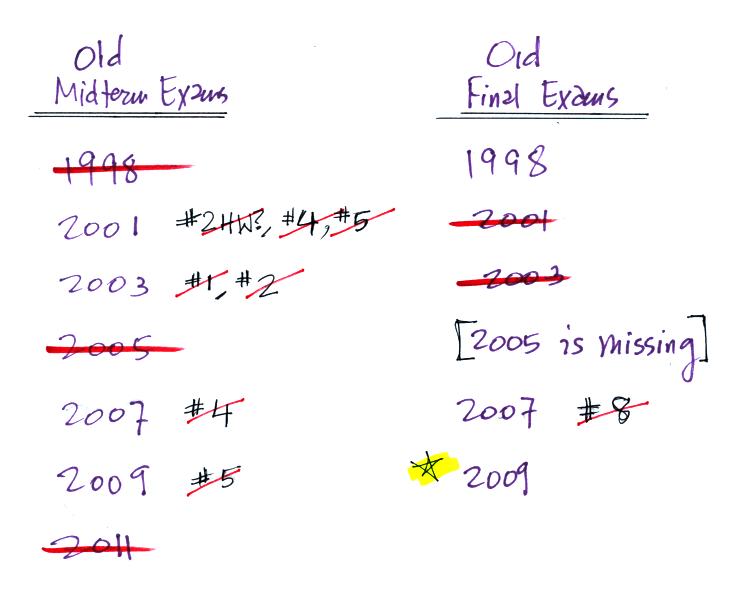 Old
Midterm Exams
1998
2001 #2HW?, #4, #5
2003 #1, #2
2005
2007 #4
2009 #5
2011
Old
Final Exams
1998
2001
2003
[2005 is missing]
2007 #8
2009